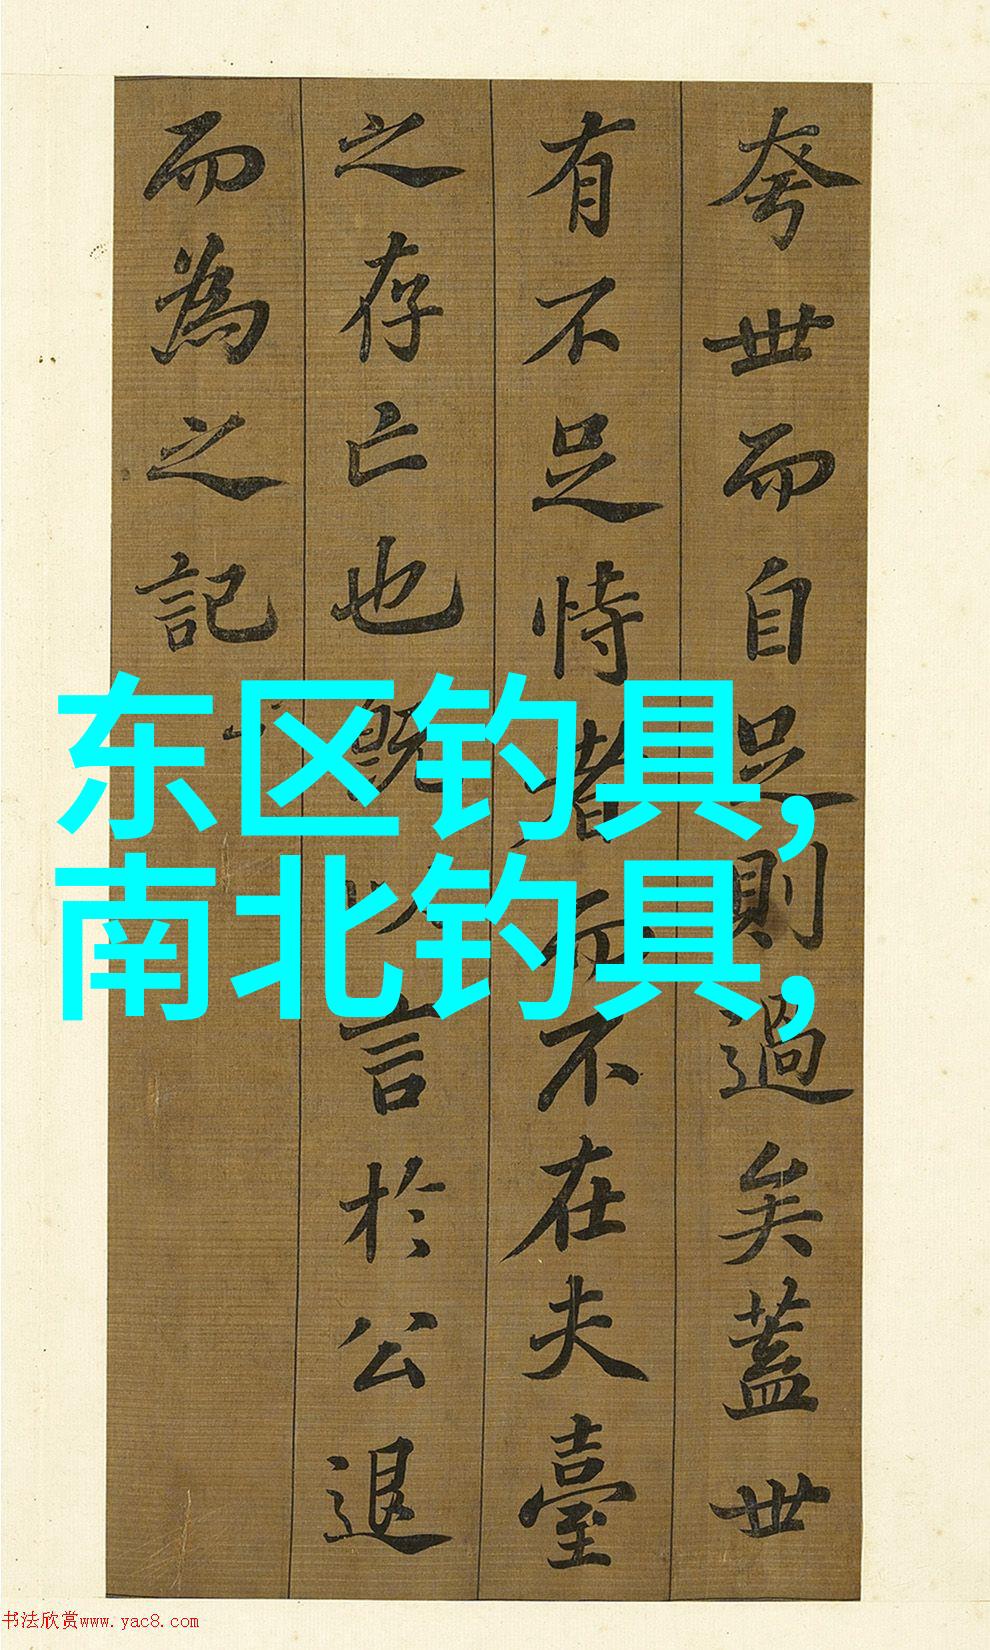 夸世而自足則過矣蓋世
有不足恃者而不在夫臺
之存亡也既以言於公退
而為之記
东区钓具,
南北钓具,
书法欣赏www.yac8.com